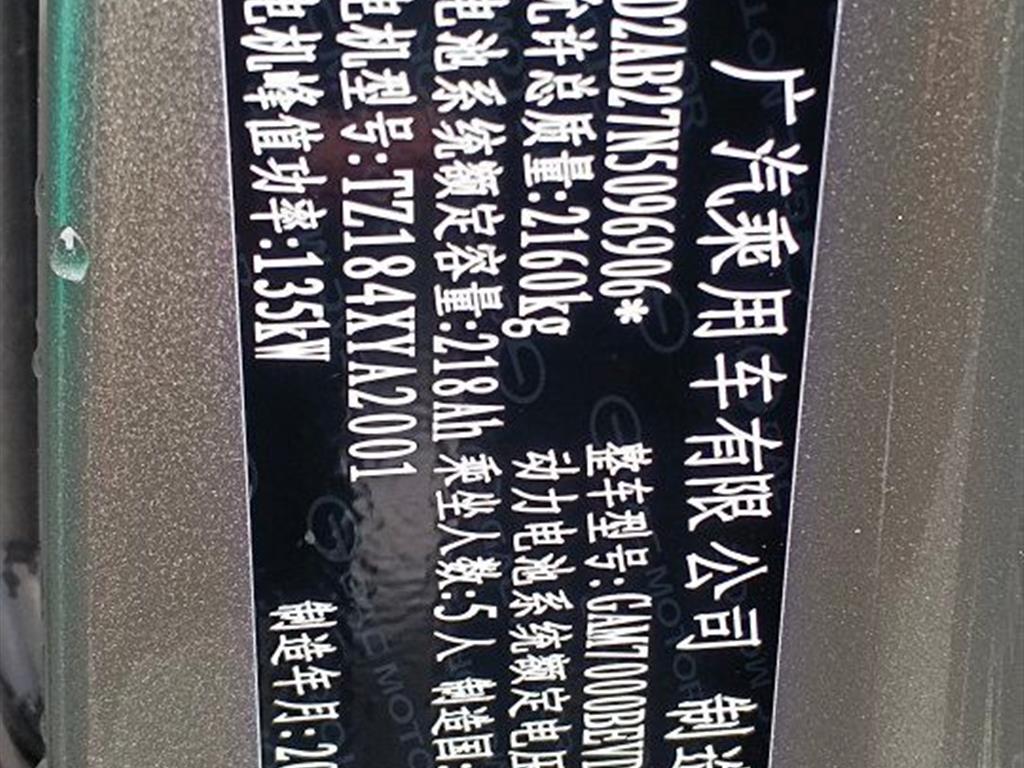 广汽乘用车有限公司 制造
D2AB27N5096906* 整车型号:GAM7000BEVD
允许总质量:2160kg 动力电池系统额定电压
电池系统额定容量:218Ah 乘坐人数:5人 制造国:
电机型号:TZ184XYA2001
电机峰值功率:135kW 制造年月:20